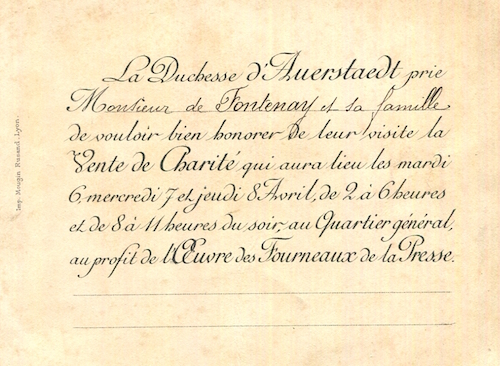 La Duchesse d'Auerstaedt prie
Monsieur de Fontenay et sa famille
de vouloir bien honorer de leur visite la
Vente de Charité qui aura lieu les mardi
6, mercredi 7 et jeudi 8 Avril, de 2 à 6 heures
et de 8 à 11 heures du soir, au Quartier général,
au profit de l'Œuvre des Fourneaux de la Presse.
Imp. Mougin Rusand. Lyon.